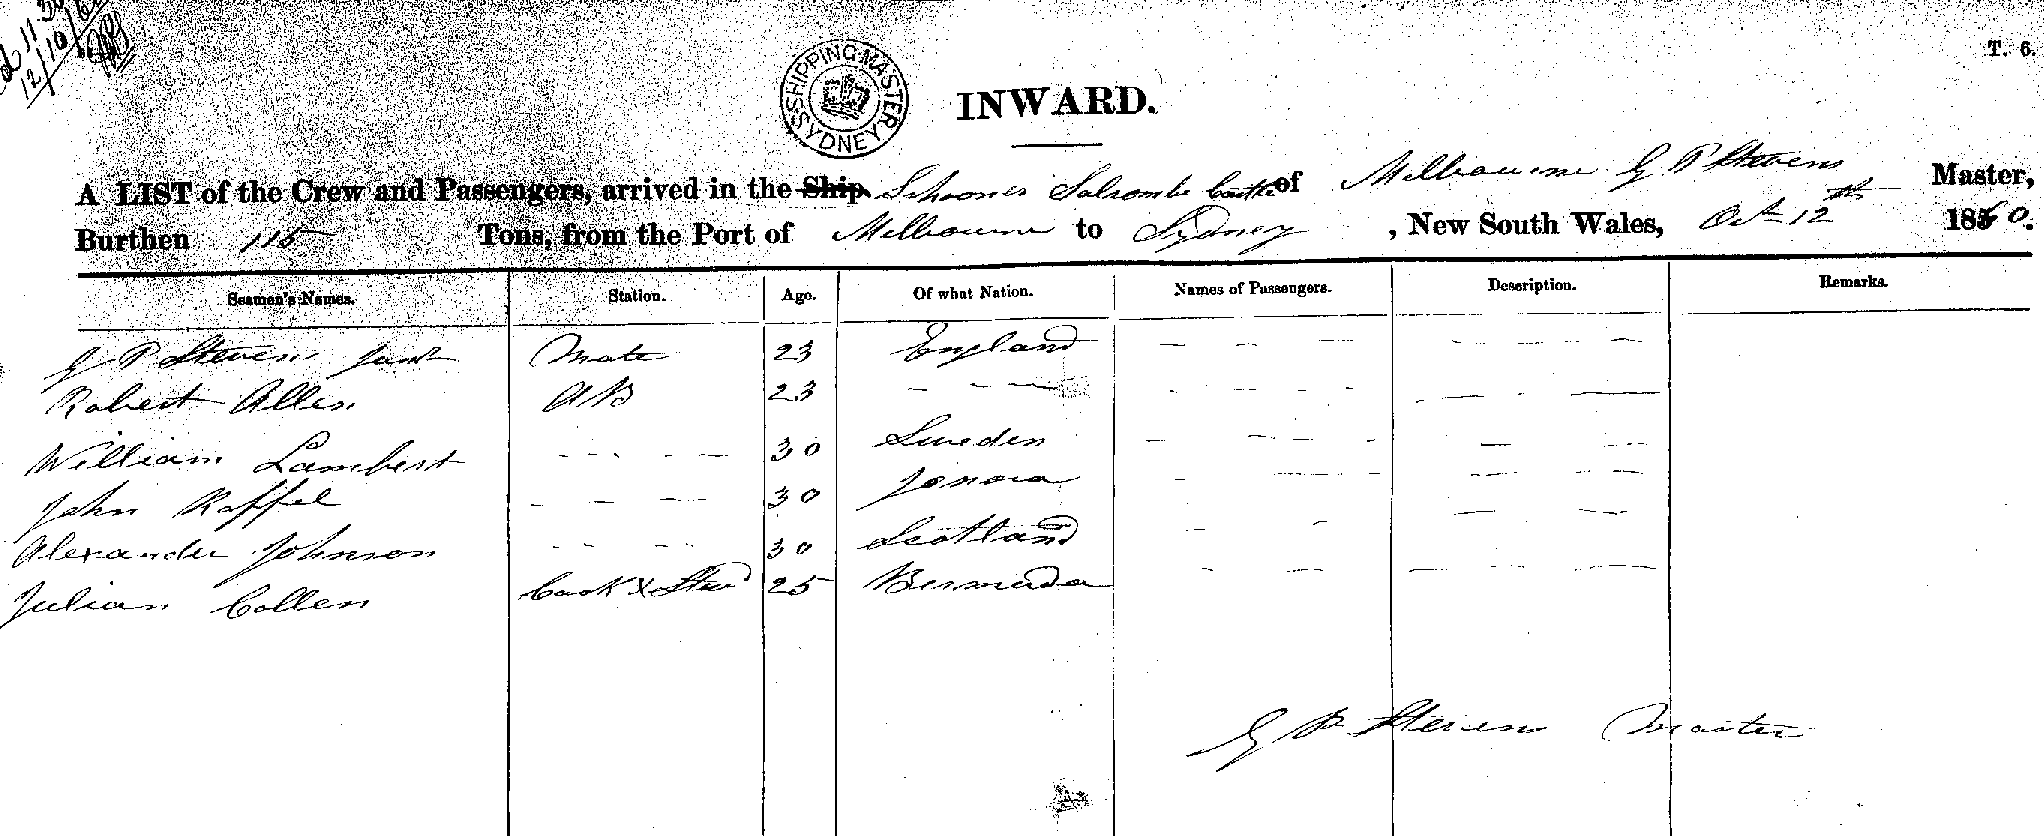 T. 6.
SHIPPING MASTER SYDNEY
INWARD.
A LIST of the Crew and Passengers, arrived in the Ship Schooner Salcombe Castle of Melbourne G P Stevens Master,
Burthen 115 Tons, from the Port of Melbourne to Sydney, New South Wales, Oct 12th 1860.
Seamen's Names. Station. Age. Of what Nation. Names of Passengers. Description. Remarks.
G P Stevens Junr Mate 23 England — — — — — — — —
Robert Allen AB 23 — — — — — — — — — —
William Lambert — — — — 30 Sweden — — — — — —
John Raffel — — — 30 Jenoa — — — — —
Alexander Johnson — — — — 30 Scotland — — — — —
Julian Collen Cook & Stewd 25 Bermuda — — — — — —
G P Stevens Master